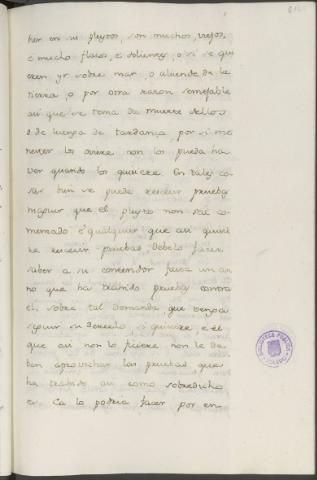 ber en su pleyto, son muchos, viejos,
e mucho flacos, e dolientes, o si se qui
eren yr sobre mar, o aluende de la
tierra, o por otra razon semejable
asi que se tema de muerte dellos
o de luenga de tardança, por si me
nester los oviere non los pueda ha
ver quando los quisiere. En tales co
sas bien se puede rescevir prueba
maguer que el pleyto non sea co
menzado e qualquier que asi quisie
re rescevir pruebas, debelo facer
saber a su contendor fasta un an
no que ha traido prueba contra
el, sobre tal demanda, que venga
seguir su derecho, si quisiere, e el
que asi non lo ficiere non le de
ben aprovechar las pruebas que
ha traido asi como sobredicho
es. Ca lo podria facer por en
BIBLIOTECA PUBLICA
TOLEDO